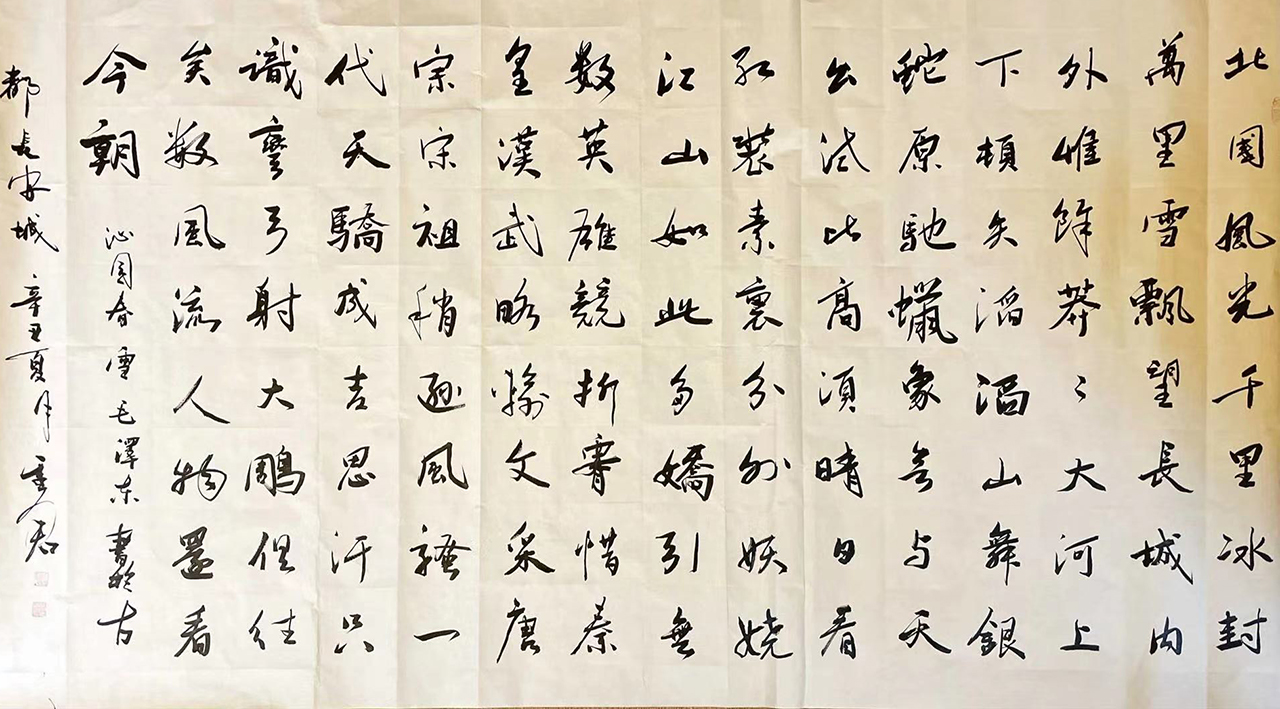 北國風光千里冰封
萬里雪飄望長城内
外惟餘莽〻大河上
下頓失滔滔山舞銀
蛇原馳蠟象与天
公試比高須晴日看
紅裝素裹分外妖娆
江山如此多嬌引無
数英雄競折惜秦
皇漢武略輸文采唐
宗宋祖稍遜風騷一
代天驕成吉思汗只
識彎弓射大鵰但往
矣数風流人物還看
今朝 沁園春 雪 毛澤东 書於古
都長安城 辛丑夏月